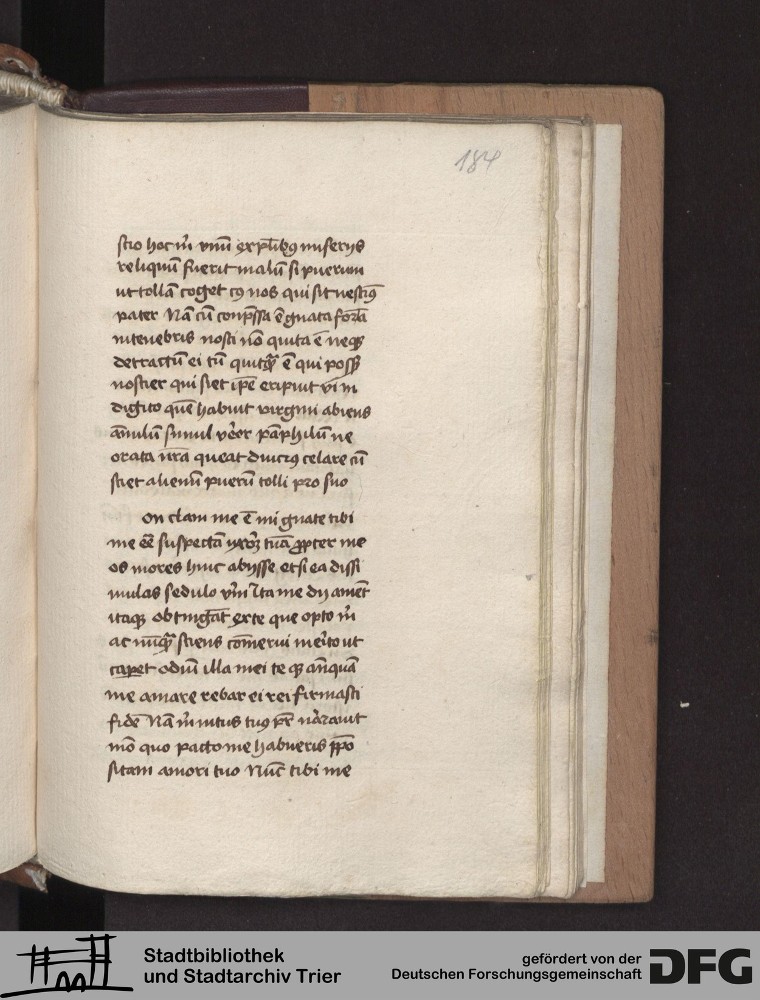 184
scio hoc m̄ vnū ex pl̄ibꝯ miserijs
reliquū fuerit malū si puerum
ut tollā coget cꝯ nos qui sit nesciꝯ
pater Nā cū conp̄ssa ē gnata forā
in tenebris nosci nō quita ē neqꝫ
detractū ei tū quitq̄ ē qui possꝫ
nostier qui siet ip̄e eripuit vi in
digito quē habuit virgini abiens
ānulū simul vērer pāphilū ne
orata nr̄a queat diuciꝯ celare cū
sciet alienū puerū tolli pro suo
on clam me ē mi gnate tibi
me eē suspectā vxorꝫ tuā ꝓpter me
os mores hinc abijsse etsi ea dissi
mulas sedulo vm̄ Ita me dij amēt
itaqꝫ obtingāt ex te que opto m̄
ac nūq̄ sciens cōmerui merito ut
capet odiū illa mei te qꝫ anquā
me amare rebar ei rei firmasti
fidē Nā m̄ intus tuꝯ pr̄ narauit
mō quo pacto me habueris p̄po
sitam amori tuo Nūc tibi me
Stadtbibliothek
und Stadtarchiv Trier
gefördert von der
Deutschen Forschungsgemeinschaft
DFG